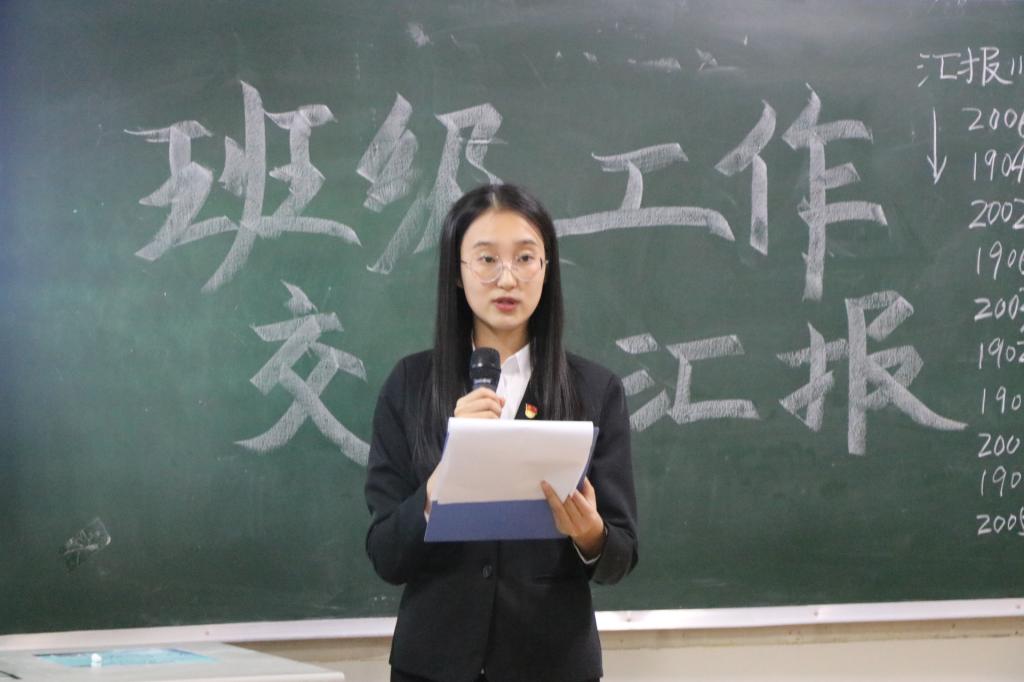 班级工作
交 汇报
汇报
200
190
2002
190
200
190
190
200
190
200